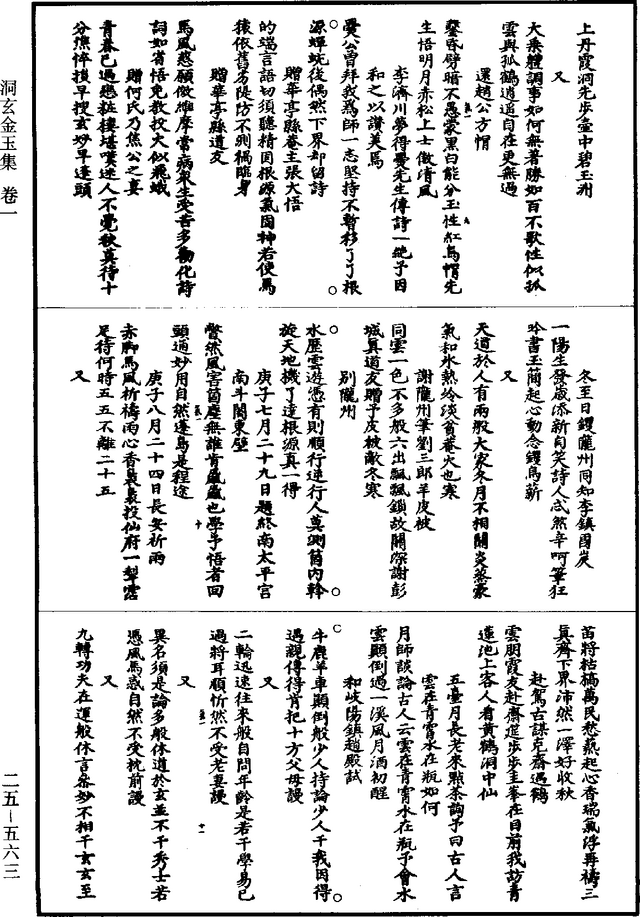 洞玄金玉集 卷一
上丹霞洞先步壺中碧玉洲
又
大乘體調事如何無著勝如百不歌性似孤
雲與孤鶴逍遙自在更無過
還趙公方帽
鑿昏劈暗不愚蒙黑白能分玉性紅烏帽先
生悟明月赤松上士傲清風
李濟川夢得晏先生傳詩一絶予因
和之以讚美焉
晏公曾拜我爲師一志堅持不暫移了了根
源蟬蛻後偶然下界却留詩
贈華亭縣菴主張大悟
的端言語切須聽精固根源氣固神若使馬
猿依舊劣隄防不測禍臨身
贈華亭縣道友
馬風慈願傚維摩常病衆生受苦多勸化詩
詞如省悟免教投火似飛蛾
贈何氏乃焦公之妻
青春已過戀粧樓堪嘆迷人不覺秋莫待十
分憔悴摸早搜玄妙早蓬頭
冬至日鑊隴州同知李鎮國炭
一陽生發盛添新句笑詩人忒煞辛呵筆狂
吟書玉簡起心動念鑊烏薪
又
天道於人有兩般大家冬月不相關炎蒸豪
氣和氷熱冷淡貧菴火也寒
謝隴州筆劉三郎羊皮被
同雲一色不多般六出飄飄鎖故關深謝彭
城真道友贈予皮被敵冬寒
別隴州
水歷雲遊憑有則順行逆行人莫測箇內幹
旋天地機了達根源真一得
庚子七月二十九日題終南太平宮
南斗閣東壁
瞥然風害箇塵無誰肯戲戲也學予悟者回
頭通妙用自然蓬島是程途
庚子八月二十四日長安祈雨
赤脚馬風祈禱雨心香裊裊投仙府一犂霑
足待何時五五不離二十五
又
苗將枯槁萬民愁爇起心香瑞氣浮再禱三
眞齊下界沛然一澤好收秋
赴駕古謀克齋遇鶴
雲朋霞友赴齋筵步步圭峯在目前我訪青
蓮池上客人看黃鶴洞中仙
五臺月長老來點茶詢予曰古人言
雲在青霄水在瓶如何
月師談論古人云雲在青霄水在瓶予會水
雲顛倒過一溪風月酒初醒
和岐陽鎮趙殿試
牛鹿羊車顛倒般少人持論少人干我因得
遇親傳得肯把十方父母謾
又
二輪迅速往來般自問年齡是若干學易已
過將耳順忻然不受老妻謾
又
異名須是論多般休道於玄並不干秀士若
憑風馬惑自然不受枕前謾
又
九轉功夫在運般休言衆妙不相干玄玄至
二五－五六三